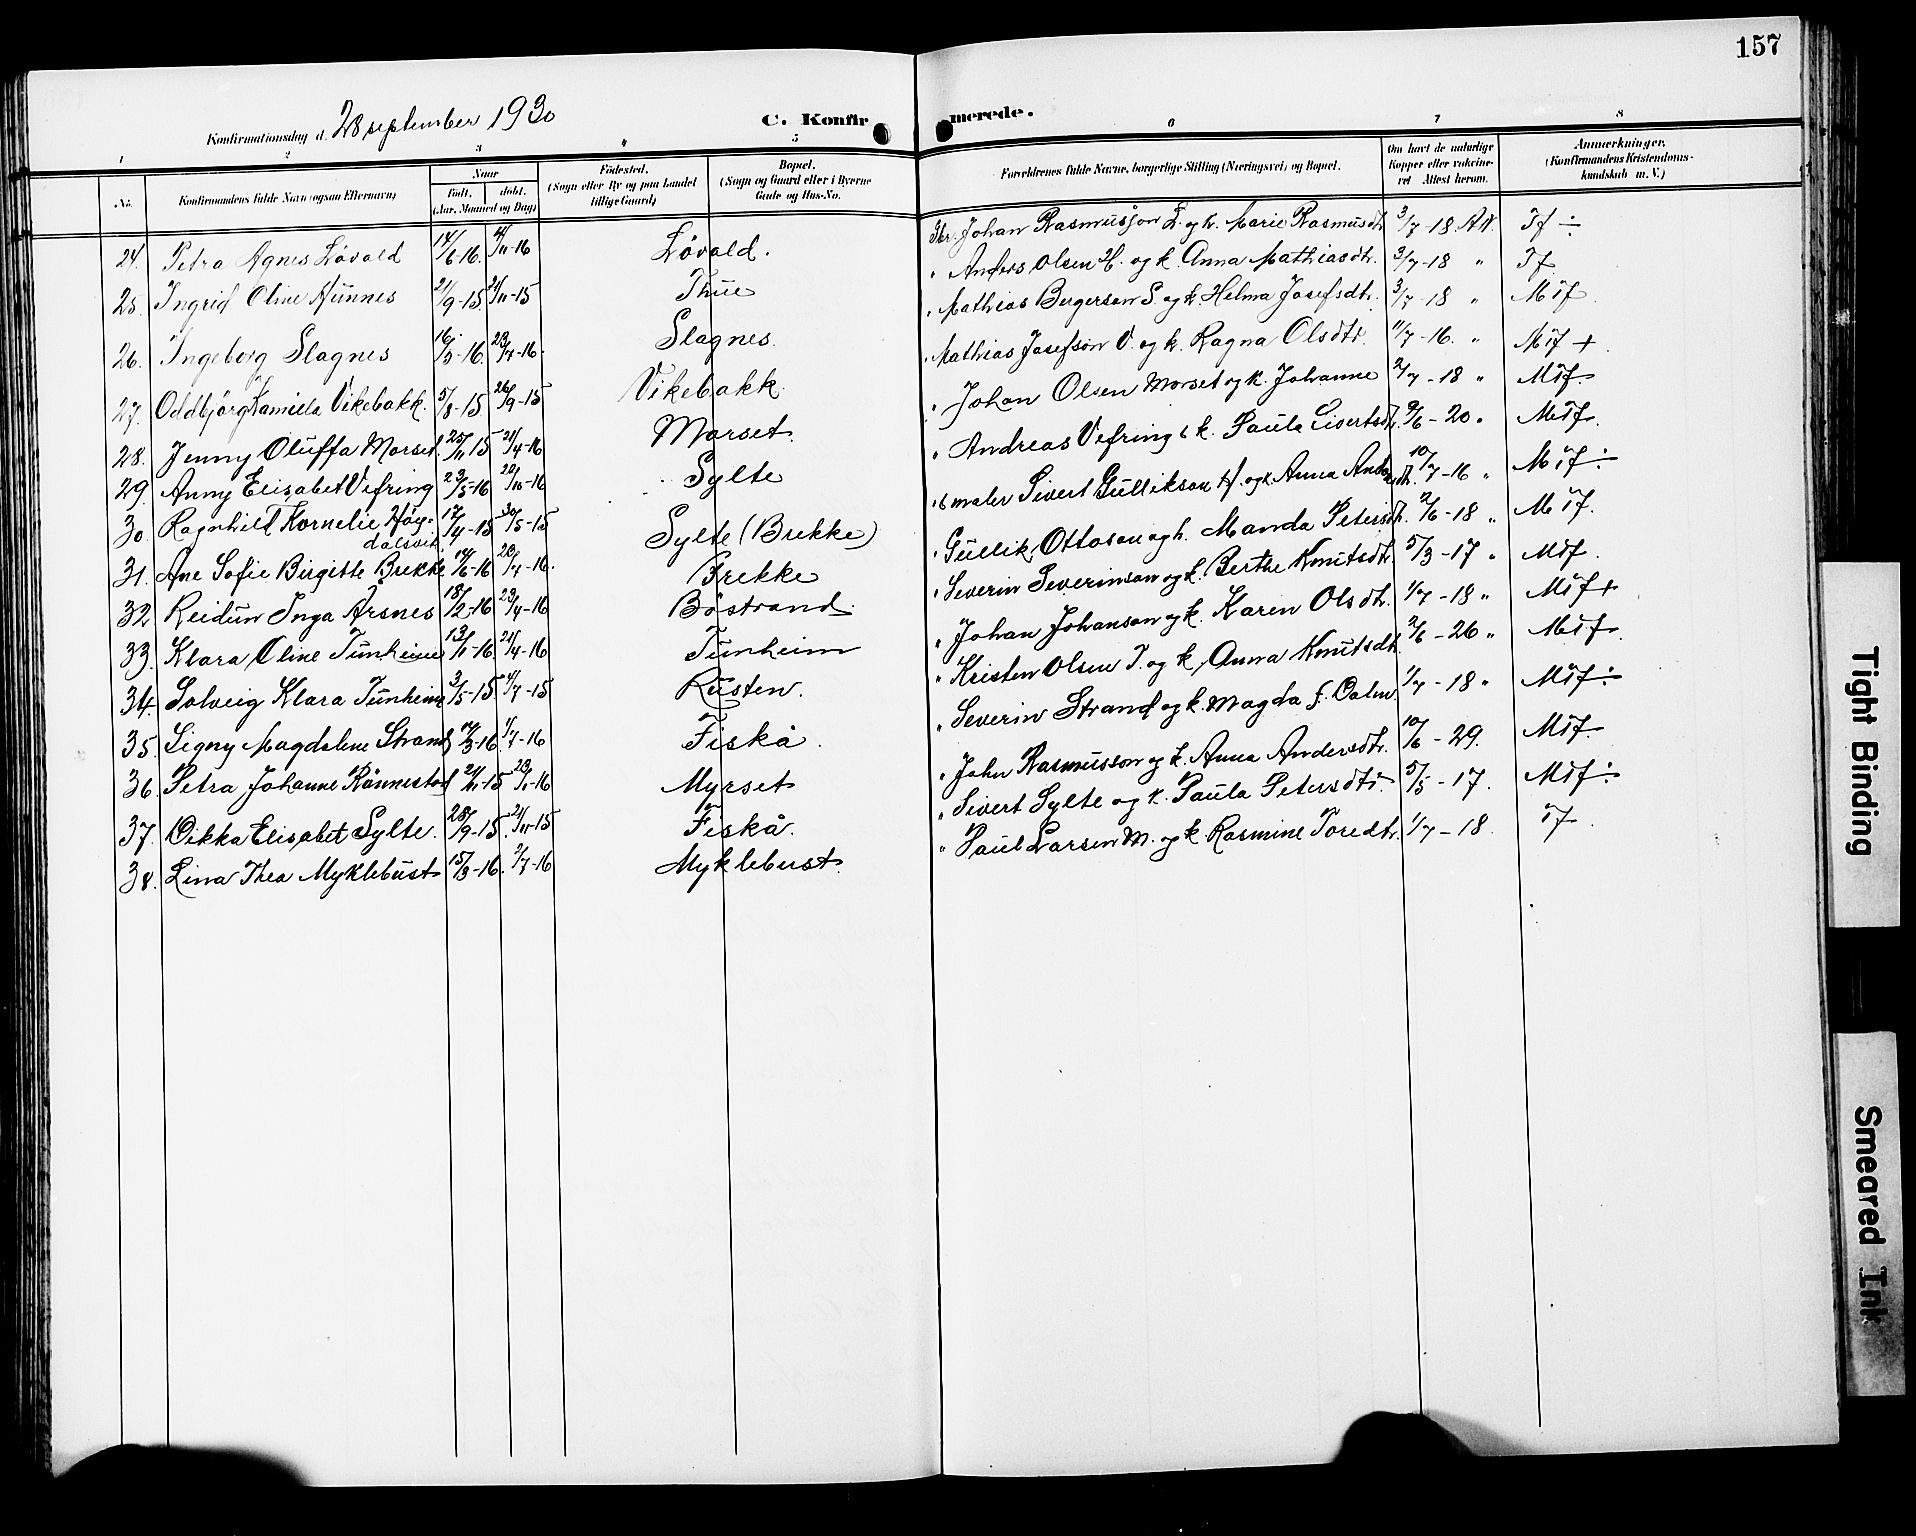 157
Konfirmationsdag d. 28 september 1930 C. Konfirmerede.
1 2 3 4 5 6 7 8
No. Konfirmandens fulde Navn (ogsaa Efternavn) Naar født. døbt. (Aar, Maaned og Dag) Fødested. (Sogn eller By og paa Landet tillige Gaard) Bopæl. (Sogn og Gaard eller i Byerne Gade og Hus-No. Forældrenes fulde Navne, borgerlige Stilling (Næringsvei) og Bopæl. Om havt de naturlige Kopper eller vakcineret. Attest herom. Anmærkninger. (Konfirmandens Kristendomskundskab m. V.)
24. Petra Agnes Løvold 14/6-16. Løvold. Johan Rasmusson L. og k. Marie Rasmusdtr 3/7-18. Att. Tf ÷
25. Ingrid Oline 21/9-15 21/11-15 Thue " Anders Olsen H. og k. Anna Mathiasdtr. 3/7-18 " Tf
26. Ingeborg Slagnes 16/5-16. 23/7-16. Slagnes. " Mathias Bergerson S. og k. Helma Josefsdtr. 3/7-18 " Mtf
27. Oddbjørg Kamilla Vikebakk. 5/8-15 26/9-15 Vikebakk " Mathias Josefson V. og k. Ragna Olsdtr. 11/7-16. " Mtf +
28. Jenny Oluffa Morset. 25/11-15 24/4-16 Morset. " Johan Olsen Morset og k. Johanne 2/7-18 " Mtf.
29. Anny Elisabet Vefring 23/5-16 Sylte " Andreas Vefring & k. Paula Sivertsdtr. 9/6-20 " Mtf.
30. Ragnhild Kornelie Høydalsvik 17/4-15 30/5-15 Sylte (Brekke) " maler Sivert Gullikson H. og k. Anna 10/7-16 " Mtf ÷
31. Ane Sofie Birgitte Brekke 14/6-16 Frekke " Gullik Ottoson og h. Manda Petersdtr. 2/6-18 " Mtf.
32. Reidun Inga Årsnes 18/2-16 23/4-16 Böstrand " Severin Severinson og k. Berthe Knutsdtr. 5/3-17 " Mtf.
33. Klara Oline Tunheim 24/4-16 Tunheim " Johan Johanson og k. Karen Olsdtr. 1/7-18 " Mtf +
34. Solveig Klara Tunheim 3/5-15 4/7-15 Rusten. " Kristen Olsen T. og k. Anna Knutsdtr. 2/6-26 " Mtf.
35. Signy Magdalene Strand 1/7-16 Fiskå. " Severin Strand og k. Magda f. Dalen 1/7-18 " Mtf ÷
36. Petra Johanne Rönnestad Myrset " John Rasmusson og k. Anna Andersdtr. 10/6-29. Mtf.
37. Dikka Elisabet Sylte. 28/9-15. 21/11-15 Fiskå. " Sivert Sylte og k. Paula Petersdtr. 5/5-17. Mtf ÷
38. Lina Thea Myklebust 15/3-16. 2/7-16 Myklebust. " Paul Larsen M. og k. Rasmine Toredtr. 1/7-18. Tf
Tight Binding
Smeared Ink